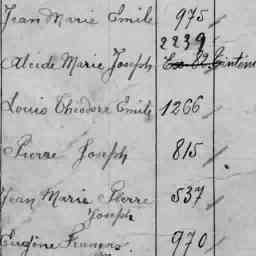 Jean Marie Emile 975
2239
Alcide Marie Joseph
Louis Théodore Emile 1266
Pierre Joseph 815
Jean Marie Pierre 537
Joseph
Eugène François 970